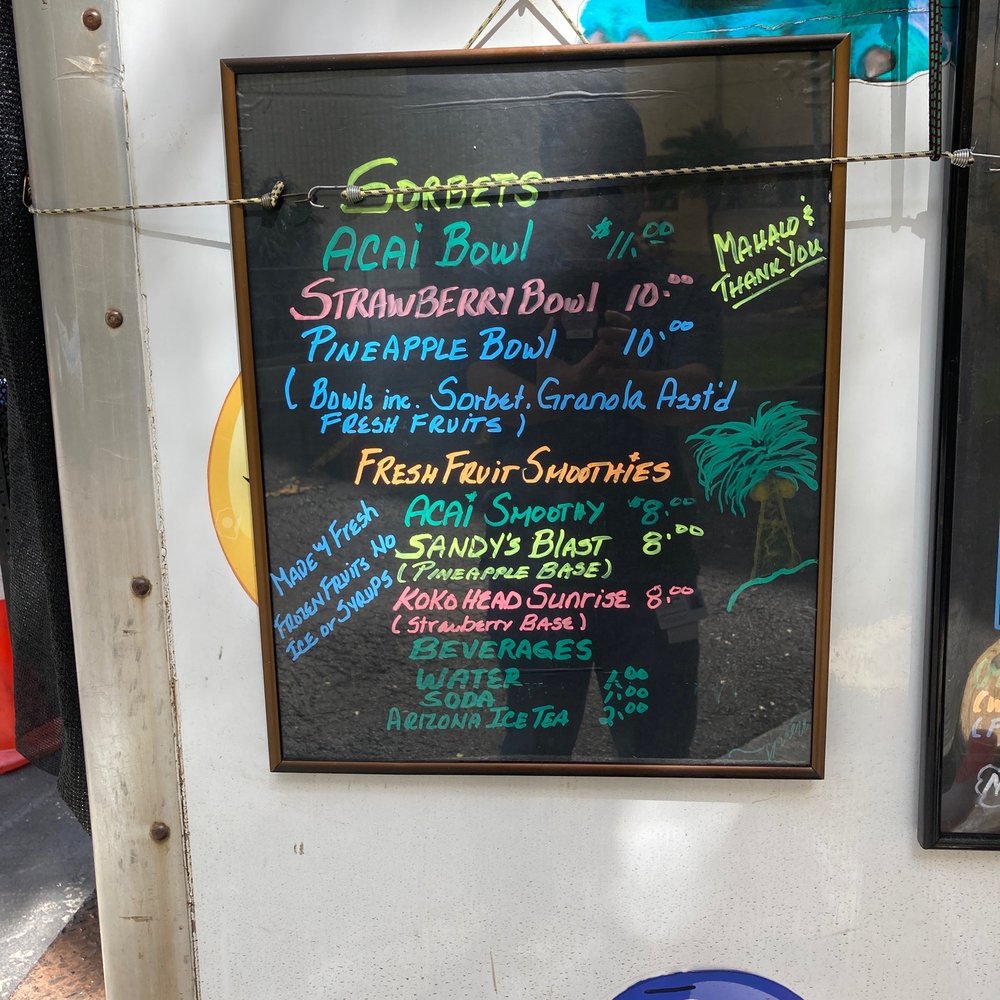 SORBETS
ACAI BOWL $11.00
STRAWBERRY BOWL 10.00
PINEAPPLE BOWL 10.00
(BOWLS inc. Sorbet, Granola Asst'd
FRESH FRUITS)
MAHALO &
THANK YOU
FRESH FRUIT SMOOTHIES
ACAI SMOOTHY $8.00
SANDY'S BLAST 8.00
(PINEAPPLE BASE)
KOKO HEAD SUNRISE 8.00
(Strawberry BASE)
MADE w/ Fresh
FROZEN FRUITS NO
ICE or SYRUPS
BEVERAGES
WATER 1.00
SODA 1.00
ARIZONA ICE TEA 2.00